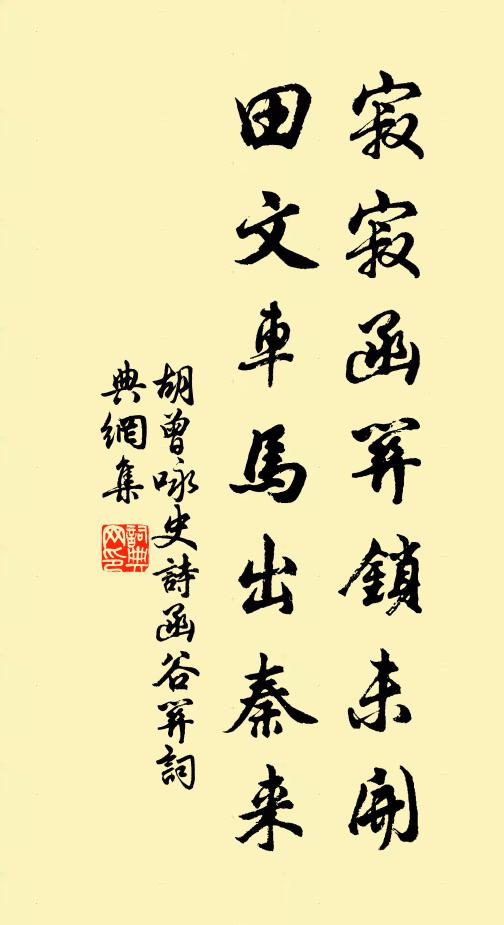 寂寂函關鎖未開
田文車馬出秦来
胡曾咏史詩函谷關詞
典網集
詞典
网印